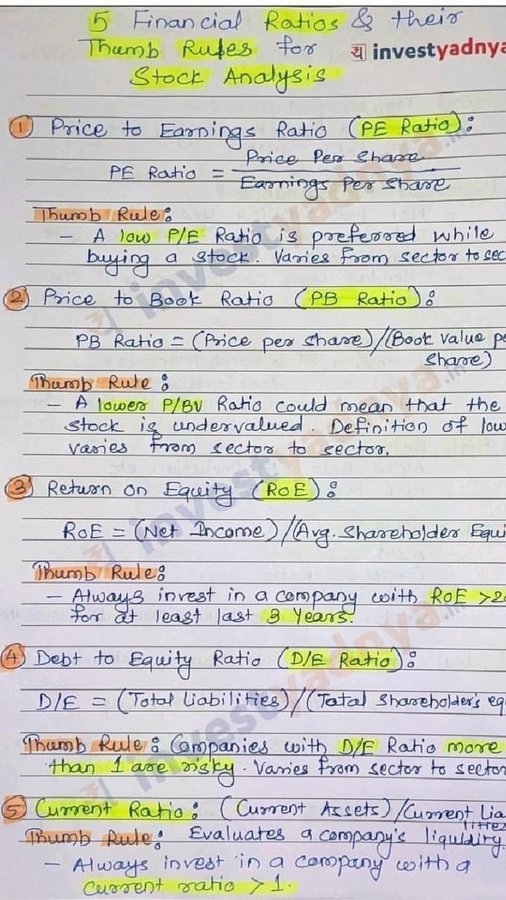 5 Financial Ratios & their
Thumb Rules for
या investyadnya
Stock Analysis
① Price to Earnings Ratio (PE Ratio):
PE Ratio = Price Per Share
Earnings Per Share
Thumb Rule:
- A low P/E Ratio is preferred while
buying a stock. Varies from sector to sec
② Price to Book Ratio (PB Ratio):
PB Ratio = (Price per share)/(Book value pe
share)
Thumb Rule:
- A lower P/BV Ratio could mean that the
stock is undervalued. Definition of low
varies from sector to sector.
③ Return on Equity (RoE):
RoE = (Net Income)/(Avg. Shareholder Equi
Thumb Rule:
- Always invest in a company with RoE >20
for at least last 3 Years.
④ Debt to Equity Ratio (D/E Ratio):
D/E = (Total Liabilities)/(Total Shareholder's eq
Thumb Rule: Companies with D/E Ratio more
than 1 are risky. Varies from sector to sector
⑤ Current Ratio: (Current Assets)/Current Lia
lities
Thumb Rule: Evaluates a company's liquidity.
- Always invest in a company with a
current ratio > 1.